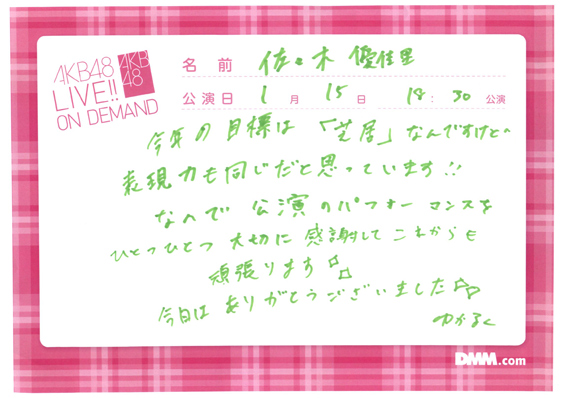 AKB48
LIVE!!
ON DEMAND
AKB
48
名前 佐々木 優佳里
公演日 1月 15日 18:30 公演
今年の目標は「芝居」なんですけど
表現力も同じだと思っています!!
なので 公演のパフォーマンスを
ひとつひとつ 大切に 感謝して これからも
頑張ります
今日は ありがとうございました
ゆかるん
DMM.com